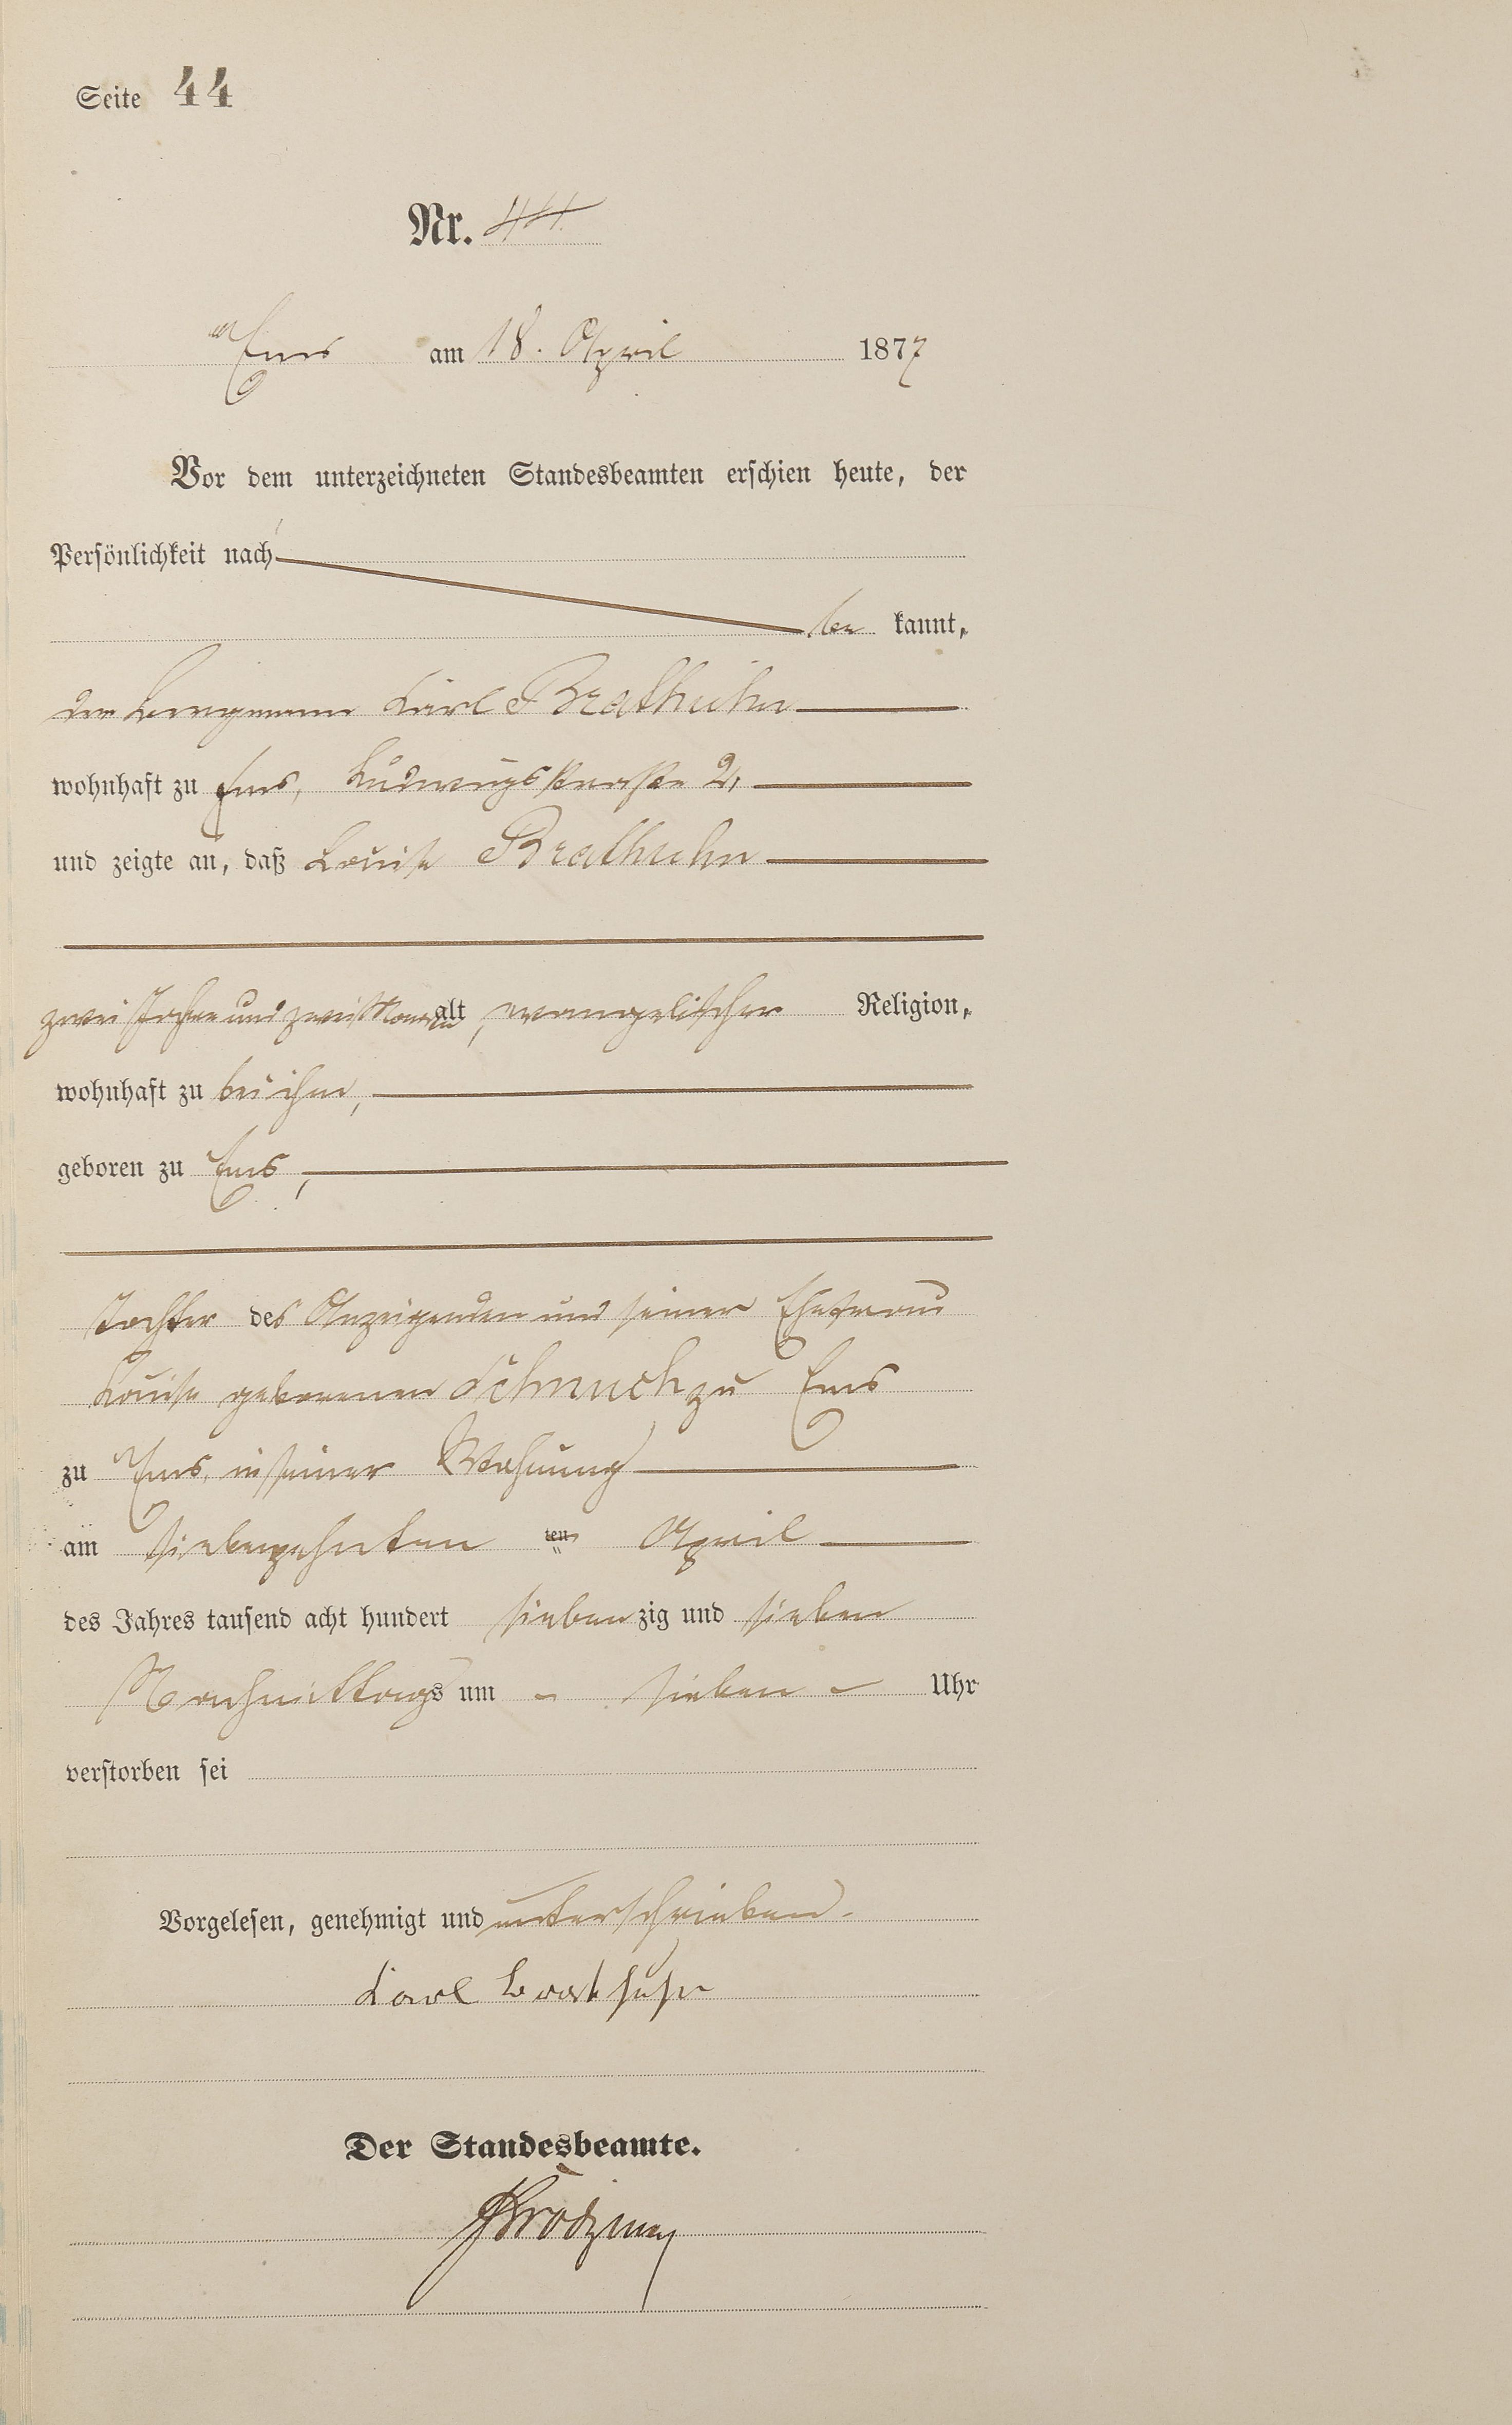 Seite 44
Nr. 44.
Ems am 18. April 1877
Vor dem unterzeichneten Standesbeamten erschien heute, der
Persönlichkeit nach
be kannt,
der Bergmann Karl Brathuhn
wohnhaft zu Ems, Ludwigstraße 2,
und zeigte an, daß Louise Brathuhn
zwei Jahre und zwei Monate alt, evangelischer Religion,
wohnhaft zu bei ihm,
geboren zu Ems,
Tochter des Anzeigenden und seiner Ehefrau
Louise geborenen Schmuck zu Ems
zu Ems, in seiner Wohnung
am siebenzehnten ten April
des Jahres tausend acht hundert sieben zig und sieben
Nachmittags um sieben Uhr
verstorben sei
Vorgelesen, genehmigt und unterschrieben.
Karl Brathuhn
Der Standesbeamte.